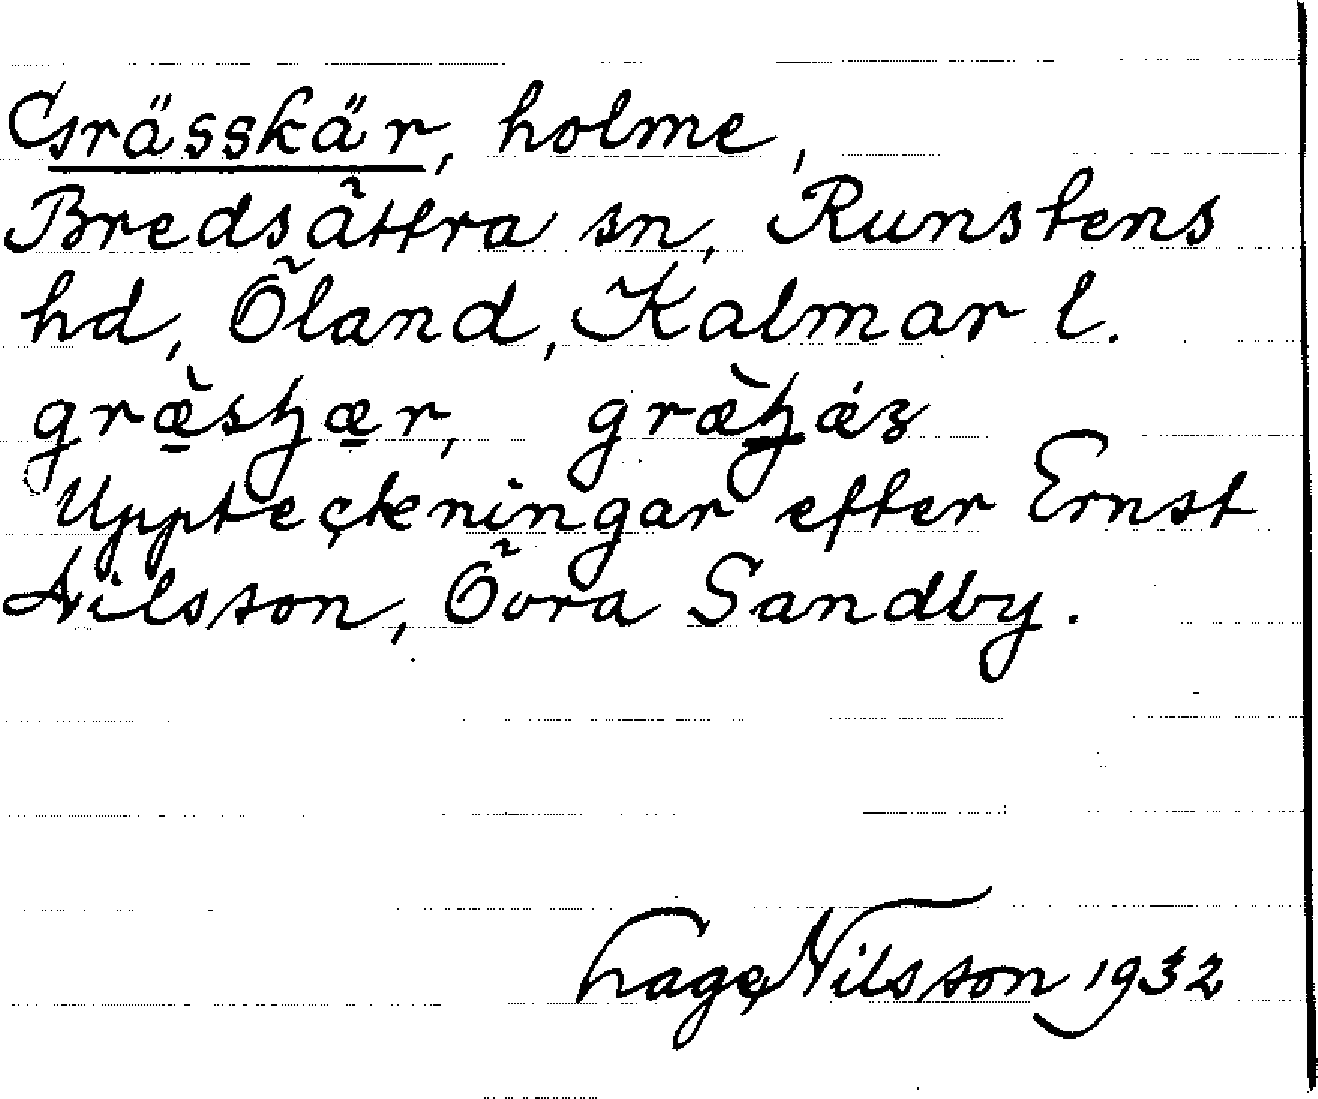 Grässkär, holme,
Bredsättra sn, Runstens
hd, Öland, Kalmar l.
Uppteckningar efter Ernst
Nilsson, Övra Sandby.
Hage Nilsson 1932